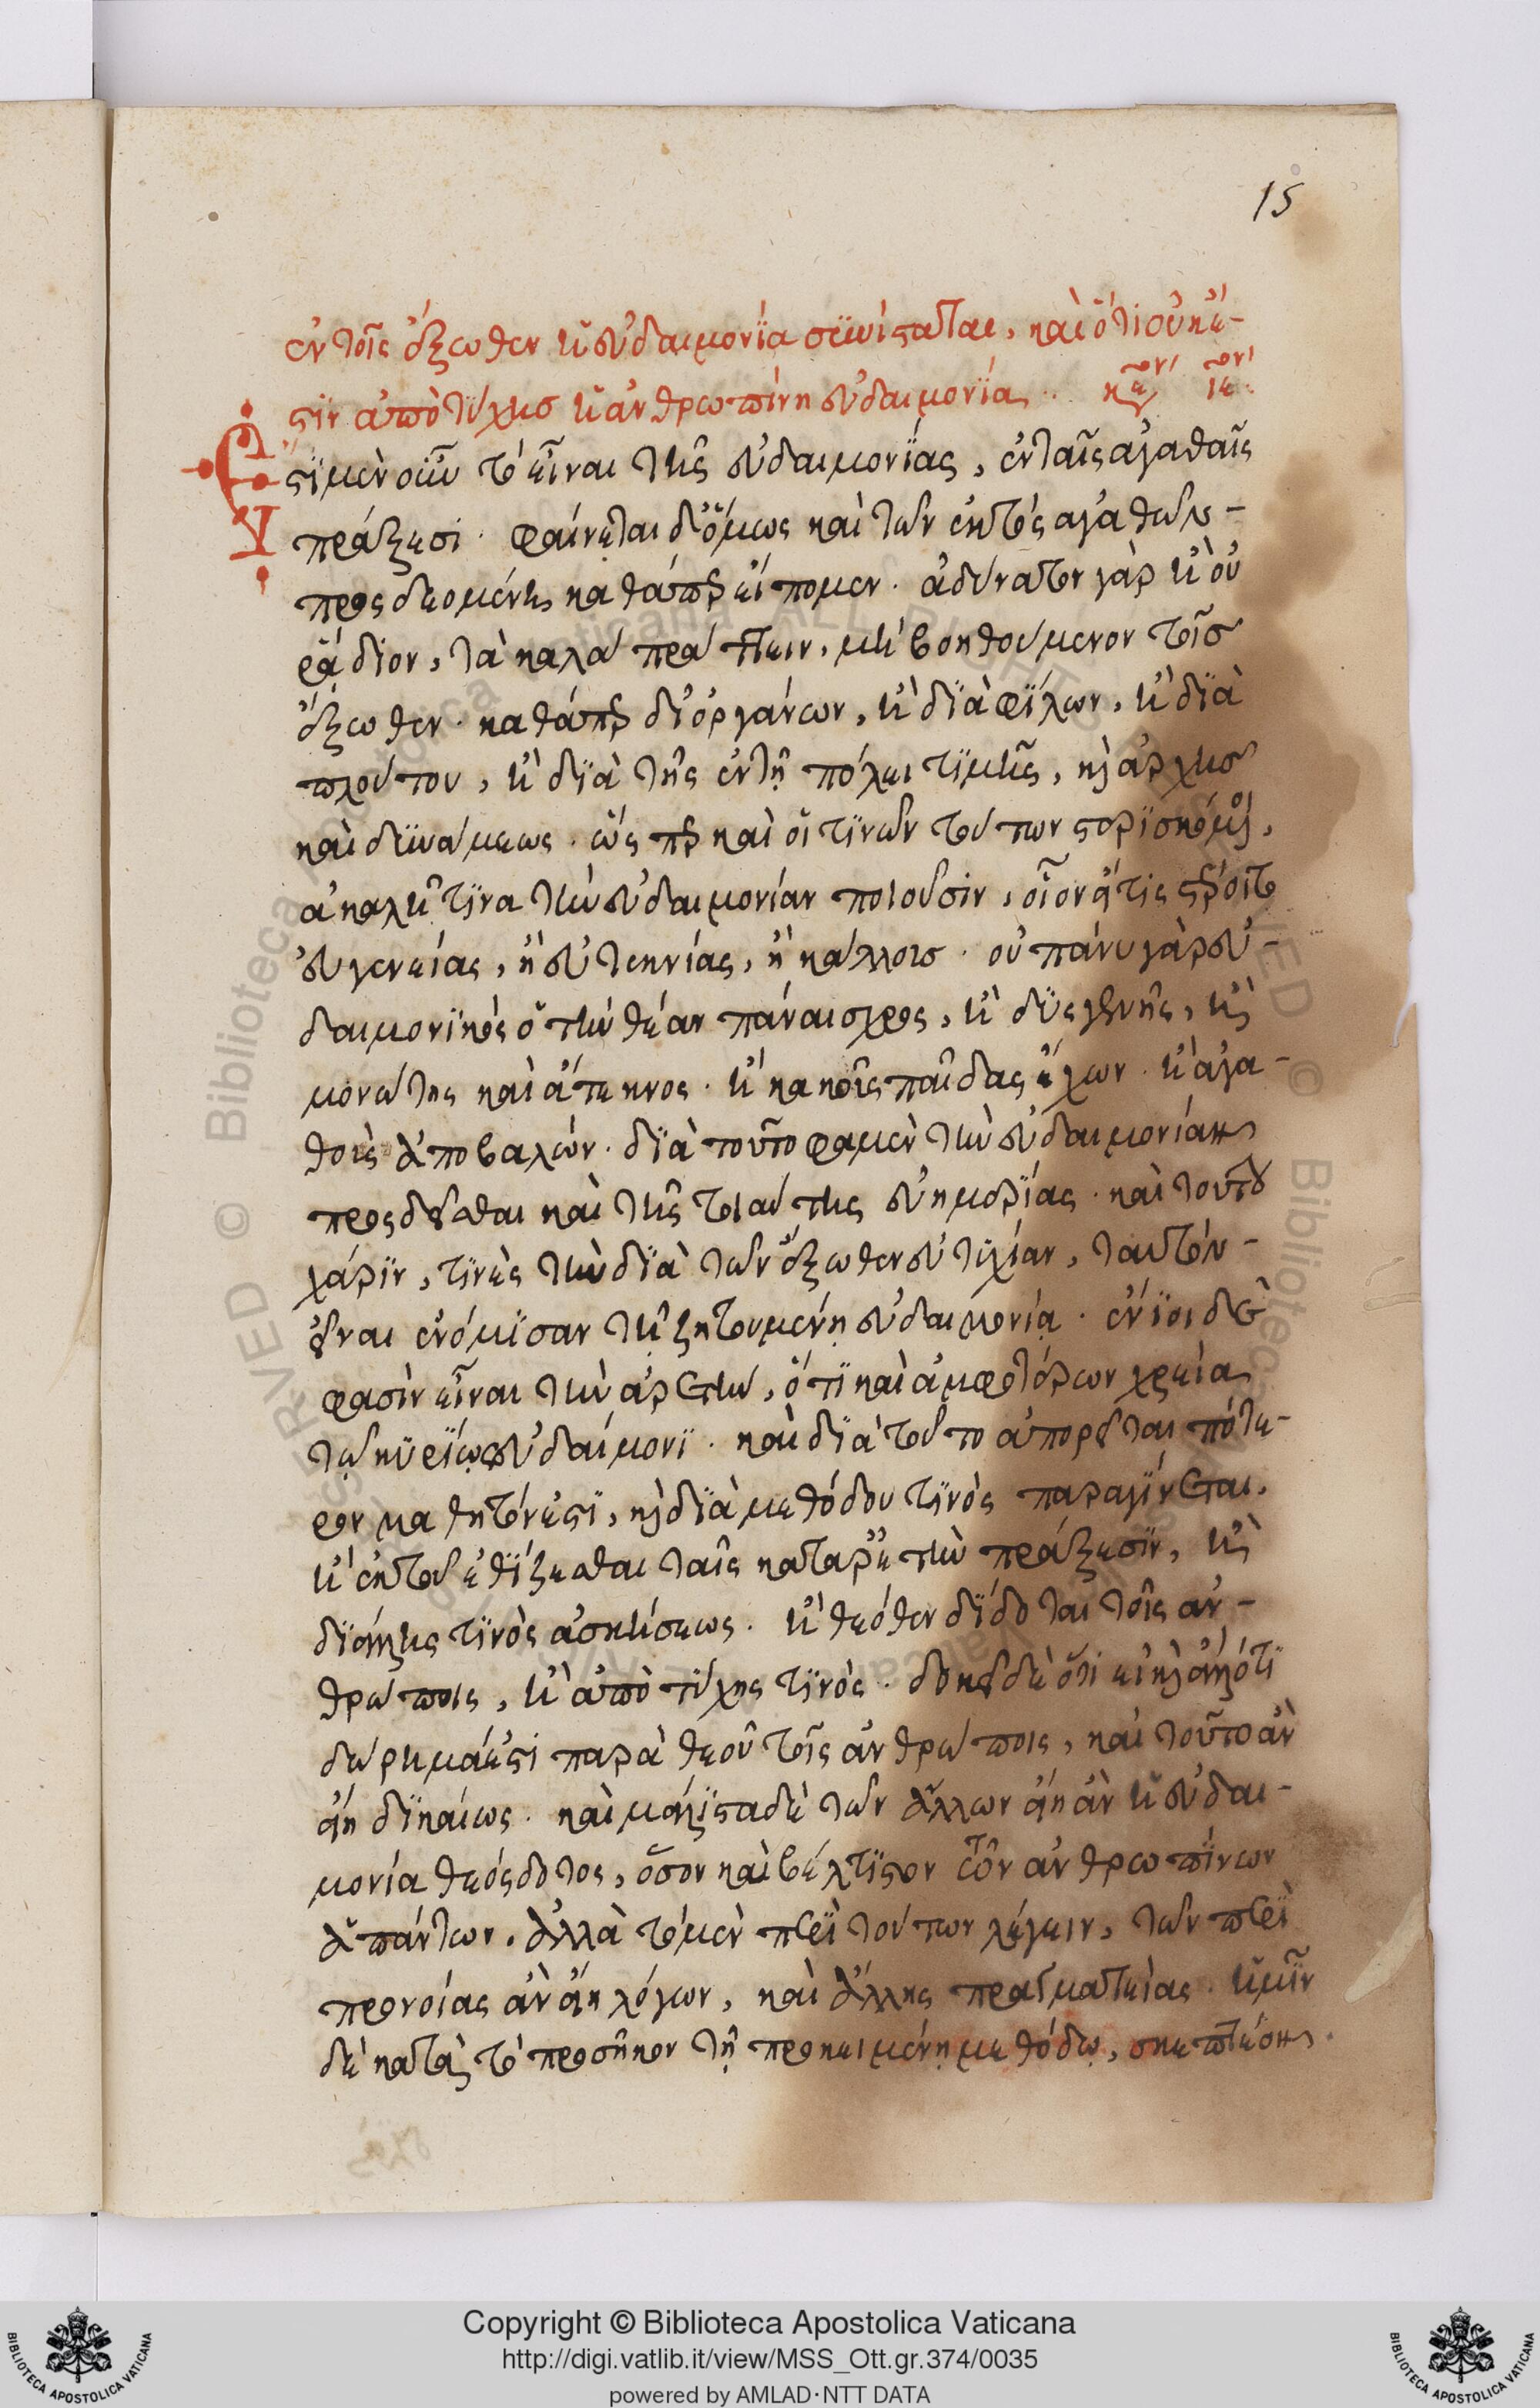 15
ἐν τοῖς ἔξωθεν ἡ εὐδαιμονία συνίσταται, καὶ ὅτι οὐκ ἔ-
στιν ἀπὸ τύχης ἡ ἀνθρωπίνη εὐδαιμονία.
Ἔστι μὲν οὖν τὸ εἶναι τῆς εὐδαιμονίας, ἐν ταῖς ἀγαθαῖς
πράξεσι. φαίνεται δ' ὅμως καὶ τῶν ἐκτὸς ἀγαθῶν
προσδεομένη, καθάπερ εἴπομεν. ἀδύνατον γὰρ ἢ οὐ
ῥᾴδιον, τὰ καλὰ πράττειν, μὴ βοηθούμενον τοῖς
ἔξωθεν. καθάπερ δι' ὀργάνων, ἢ διὰ φίλων, ἢ διὰ
πλούτου, ἢ διὰ τῆς ἐν τῇ πόλει τιμῆς, καὶ ἀρχῆς
καὶ δυνάμεως. ὥσπερ καὶ οἵ τινῶν τούτων στερισκόμενοι,
ἀκαλῆ τινα τὴν εὐδαιμονίαν ποιοῦσιν, οἷον εἴ τις στέροιτο
εὐγενείας, ἢ εὐτεκνίας, ἢ κάλλους. οὐ πάνυ γὰρ εὐ-
δαιμονικὸς ὁ τὴν θέαν πάναισχρος, ἢ δυσγενὴς, ἢ
μονώτης καὶ ἄτεκνος. ἢ κακοὺς παῖδας ἔχων. ἢ ἀγα-
θοὺς ἀποβαλών. διὰ τοῦτο φαμὲν τὴν εὐδαιμονίαν
προσδεῖσθαι καὶ τῆς τοιαύτης εὐημερίας. καὶ τούτου
χάριν, τινὲς τὴν διὰ τῶν ἔξωθεν εὐτυχίαν, ταυτὸν
εἶναι ἐνόμισαν τῇ ζητουμένῃ εὐδαιμονίᾳ. ἔνιοι δὲ
φασὶν εἶναι τὴν ἀρετὴν, ὅτι καὶ ἀμφοτέρων χρεία
τῷ κυρίως εὐδαίμονι. καὶ διὰ τοῦτο ἀπορεῖται πότε-
ρον μαθητόν ἐστι, καὶ διὰ μεθόδου τινὸς παραγίνεται,
ἢ ἐκ τοῦ ἐθίζεσθαι ταῖς κατ' ἀρετὴν πράξεσιν, ἢ
δι' ἄλλης τινὸς ἀσκήσεως. ἢ θεόθεν δίδοται τοῖς ἀν-
θρώποις, ἢ ἀπὸ τύχης τινός. δοκεῖ δὲ ὅτι εἰ καὶ ἄλλό τι
δώρημά ἐστι παρὰ θεοῦ τοῖς ἀνθρώποις, καὶ τοῦτο ἂν
εἴη δικαίως. καὶ μάλιστα δὲ τῶν ἄλλων εἴη ἂν ἡ εὐδαι-
μονία θεόσδοτος, ὅσον καὶ βέλτιστον τῶν ἀνθρωπίνων
ἁπάντων. ἀλλὰ τὸ μὲν περὶ τούτων λέγειν, τῶν περὶ
προνοίας ἂν εἴη λόγων, καὶ ἄλλης πραγματείας. ἡμῖν
δὲ κατὰ τὸ προσῆκον τῇ προκειμένῃ μεθόδῳ, σκεπτέον
Copyright © Biblioteca Apostolica Vaticana
http://digi.vatlib.it/view/MSS_Ott.gr.374/0035
powered by AMLAD·NTT DATA